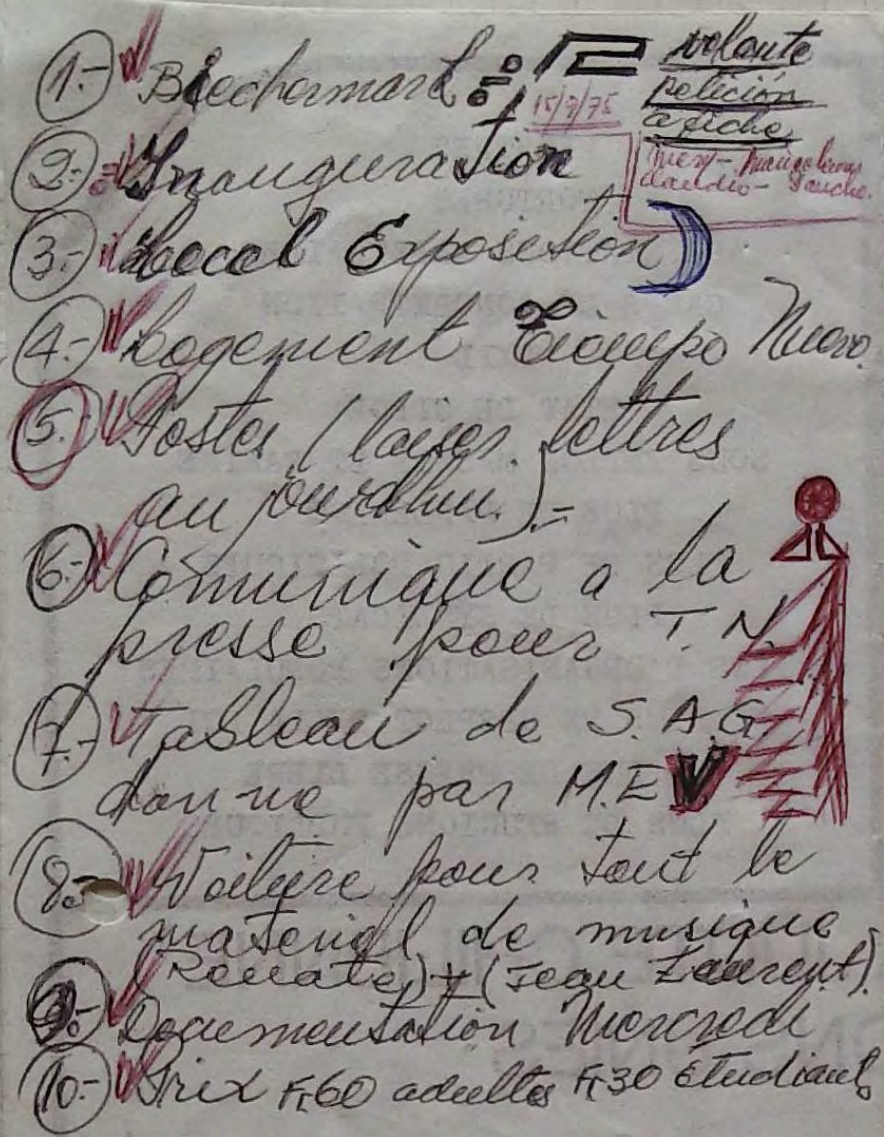 1.- Biechermarkt : volante
petición
afiche
15/9/75
2.- Inauguration
Claudio -
3.- Local Exposition
4.- Logement Tiempo Nuevo.
5.- Postes (laises lettres
au jourdhui.) -
6.- Comuniqué a la
presse pour T.N.
7.- Tableau de S.A.G
donne par M.E.V
8.- Voiture pour tout le
material de musique
(Renate) + (Jean Laurent).
9.- Documentation Mercredi
10.- Prix Fr 60 adultes Fr 30 étudiants